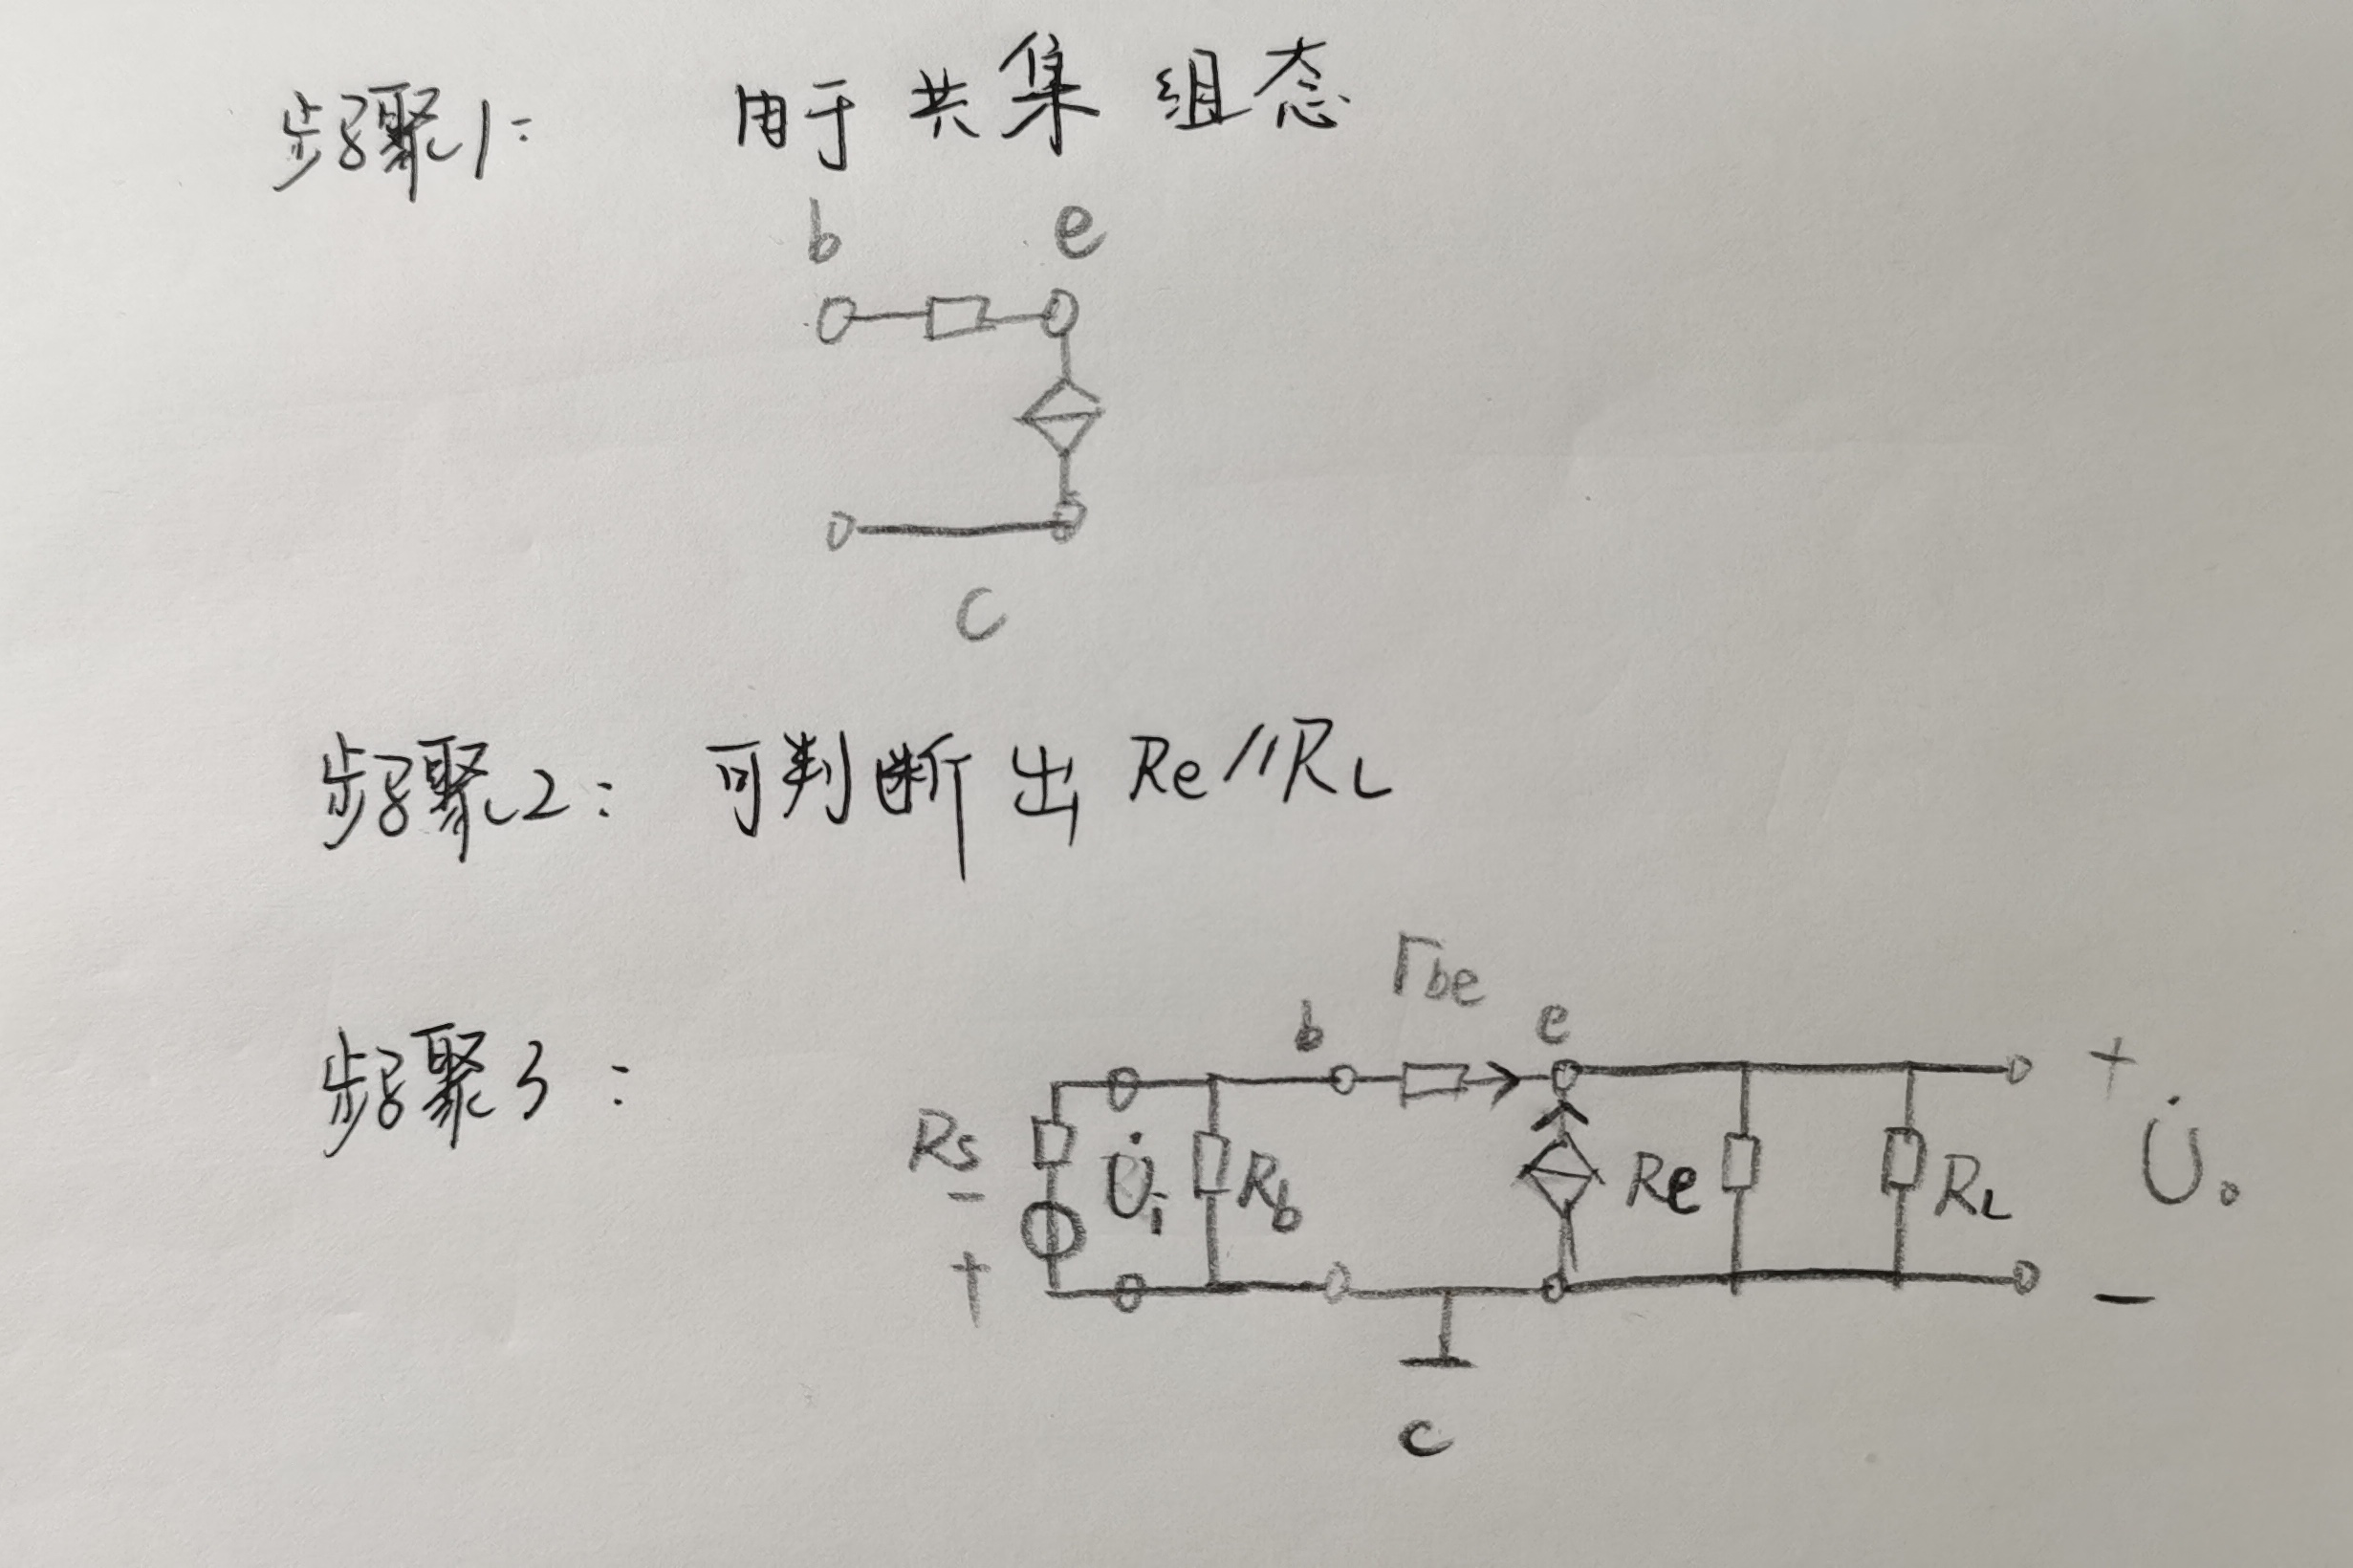 步骤1: 用于共集组态
b e
c
步骤2: 可判断出 Re//RL
步骤3:
rbe
b e
+
Rs U̇i Rb Re RL U̇o
-
+
-
c